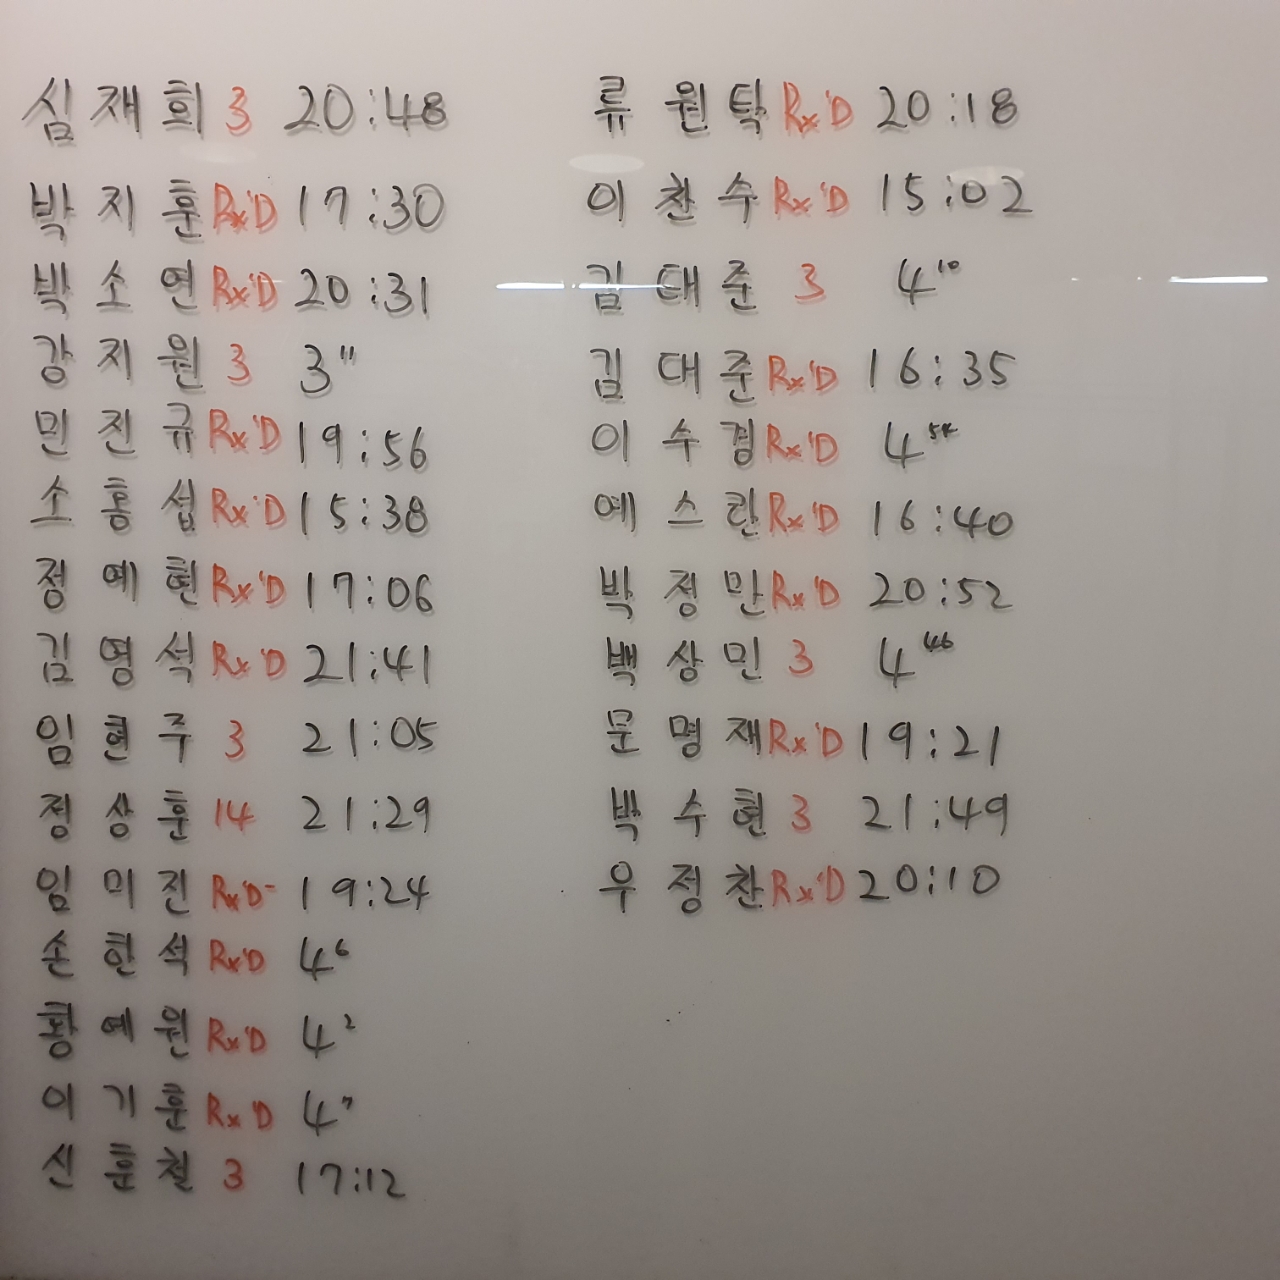 심재희 3 20:48
박지훈 Rx'D 17:30
박소연 Rx'D 20:31
강지원 3 3"
민진규 Rx'D 19:56
소홍섭 Rx'D 15:38
정예현 Rx'D 17:06
김영석 Rx'D 21:41
임현주 3 21:05
정상훈 14 21:29
임미진 Rx'D- 19:24
손한석 Rx'D 4⁶
황예원 Rx'D 4²
이기훈 Rx'D 4⁷
신훈철 3 17:12
류원탁 Rx'D 20:18
이찬수 Rx'D 15:02
김태준 3 4¹⁰
김대준 Rx'D 16:35
이수경 Rx'D 4⁵⁴
예스란 Rx'D 16:40
박정만 Rx'D 20:52
백상민 3 4⁴⁶
문명재 Rx'D 19:21
박수현 3 21:49
우정찬 Rx'D 20:10